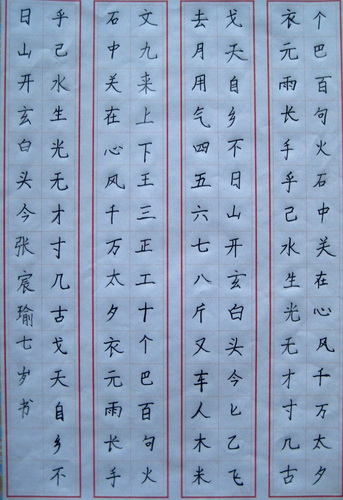 个巴百句火石中关在心风千万太夕
衣元雨长手乎己水生光无才寸几古
戈天自乡不日山开玄白头今匕乙飞
去月用气四五六七八斤又车人木米
文九来上下王三正工十个巴百句火
石中关在心风千万太夕衣元雨长手
乎己水生光无才寸几古戈天自乡不
日山开玄白头今张宸瑜七岁书